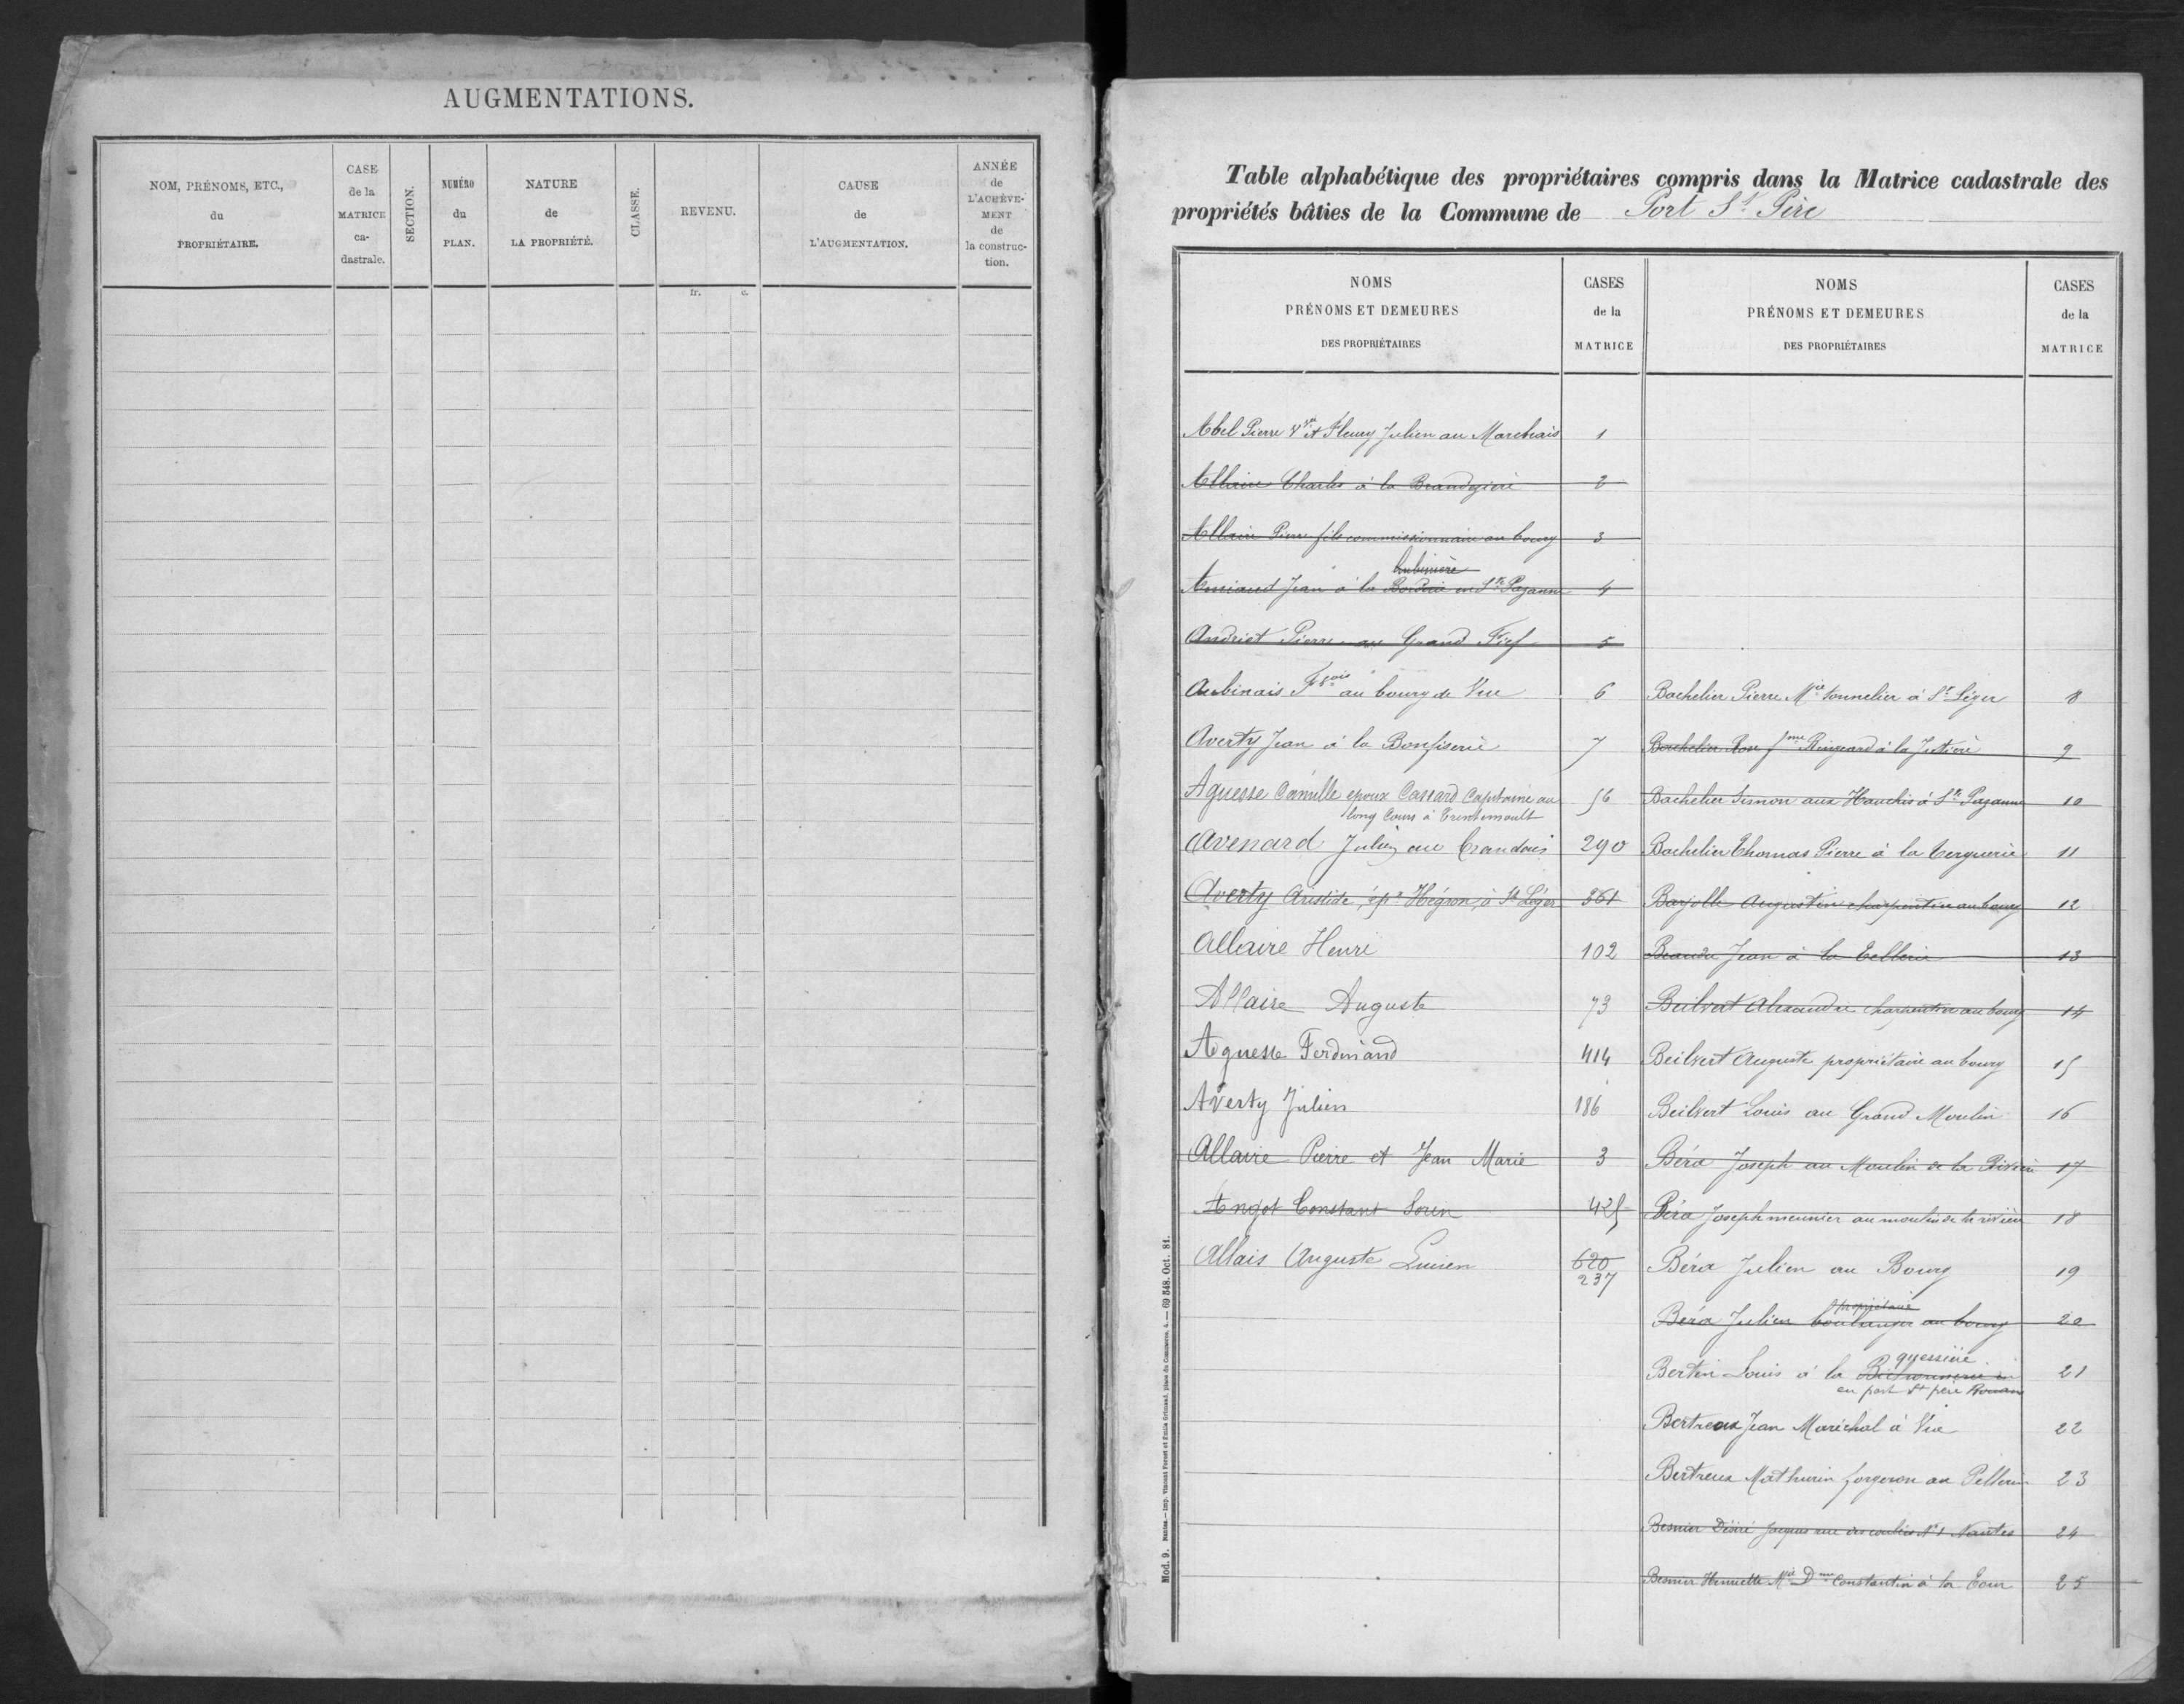 AUGMENTATIONS.
NOM, PRÉNOMS, ETC.,
du
PROPRIÉTAIRE.
CASE
de la
MATRICE
ca-
dastrale.
SECTION.
NUMÉRO
du
PLAN.
NATURE
de
LA PROPRIÉTÉ.
CLASSE.
REVENU.
CAUSE
de
L'AUGMENTATION.
ANNÉE
de
L'ACHÈVE-
MENT
de
la construc-
tion.
fr. c.
Table alphabétique des propriétaires compris dans la Matrice cadastrale des
propriétés bâties de la Commune de Port St Père
NOMS
PRÉNOMS ET DEMEURES
DES PROPRIÉTAIRES
CASES
de la
MATRICE
NOMS
PRÉNOMS ET DEMEURES
DES PROPRIÉTAIRES
CASES
de la
MATRICE
Abel Pierre Vve et Fleury Julien au Marchais 1
Allaire Charles à la 2
Allaire Pierre fils commissionnaire au bourg 3
Amiaud Jean à la Borderie en Ste Pazanne 4
Andriet Pierre au Grand Fief 5
Aubinais Fçois au bourg de Vue 6
Averty Jean à la Bonfiserie 7
Aguesse Camille époux Cassard Capitaine au 56
long Cours à Trentemoult
Avenard Julien au Crandais 290
Averty Aristide, épx Hégron, à St Léger 361
Allaire Henri 102
Allaire Auguste 73
Aguesse Ferdinand 414
Averty Julien 186
Allaire Pierre et Jean Marie 3
Angot Constant Sorin 425
Allais Auguste Lucien 620
237
Bachelier Pierre Mie tonnelier à St Léger 8
Bachelier Rose fme Ringeard à la Jutière 9
Bachelier Simon aux Hauchis à Ste Pazanne 10
Bachelier Thomas Pierre à la Terguerie 11
Barjolle Augustin charpentier au bourg 12
Beaudu Jean à la Tellerie 13
Beilvert Alexandre Charpentier au bourg 14
Beilvert Auguste propriétaire au bourg 15
Beilvert Louis au Grand Moulin 16
Béra Joseph au Moulin de la Rivière 17
Béra Joseph meunier au moulin de la rivière 18
Béra Julien au Bourg 19
propriétaire
Béra Julien boulanger au bourg 20
guessière
Bertin Louis à la 21
en port St père Rouans
Bertreux Jean Maréchal à Vue 22
Bertreux Mathurin forgeron au Pellerin 23
Besnier Désiré Jacques rue N° 1 Nantes 24
Besnier Henriette Mie Dme Constantin à la Cour 25
Mod. 9. Nantes. — Imp. Vincent Forest et Émile Grimaud, place du Commerce, 4. — 69 848. Oct. 81.